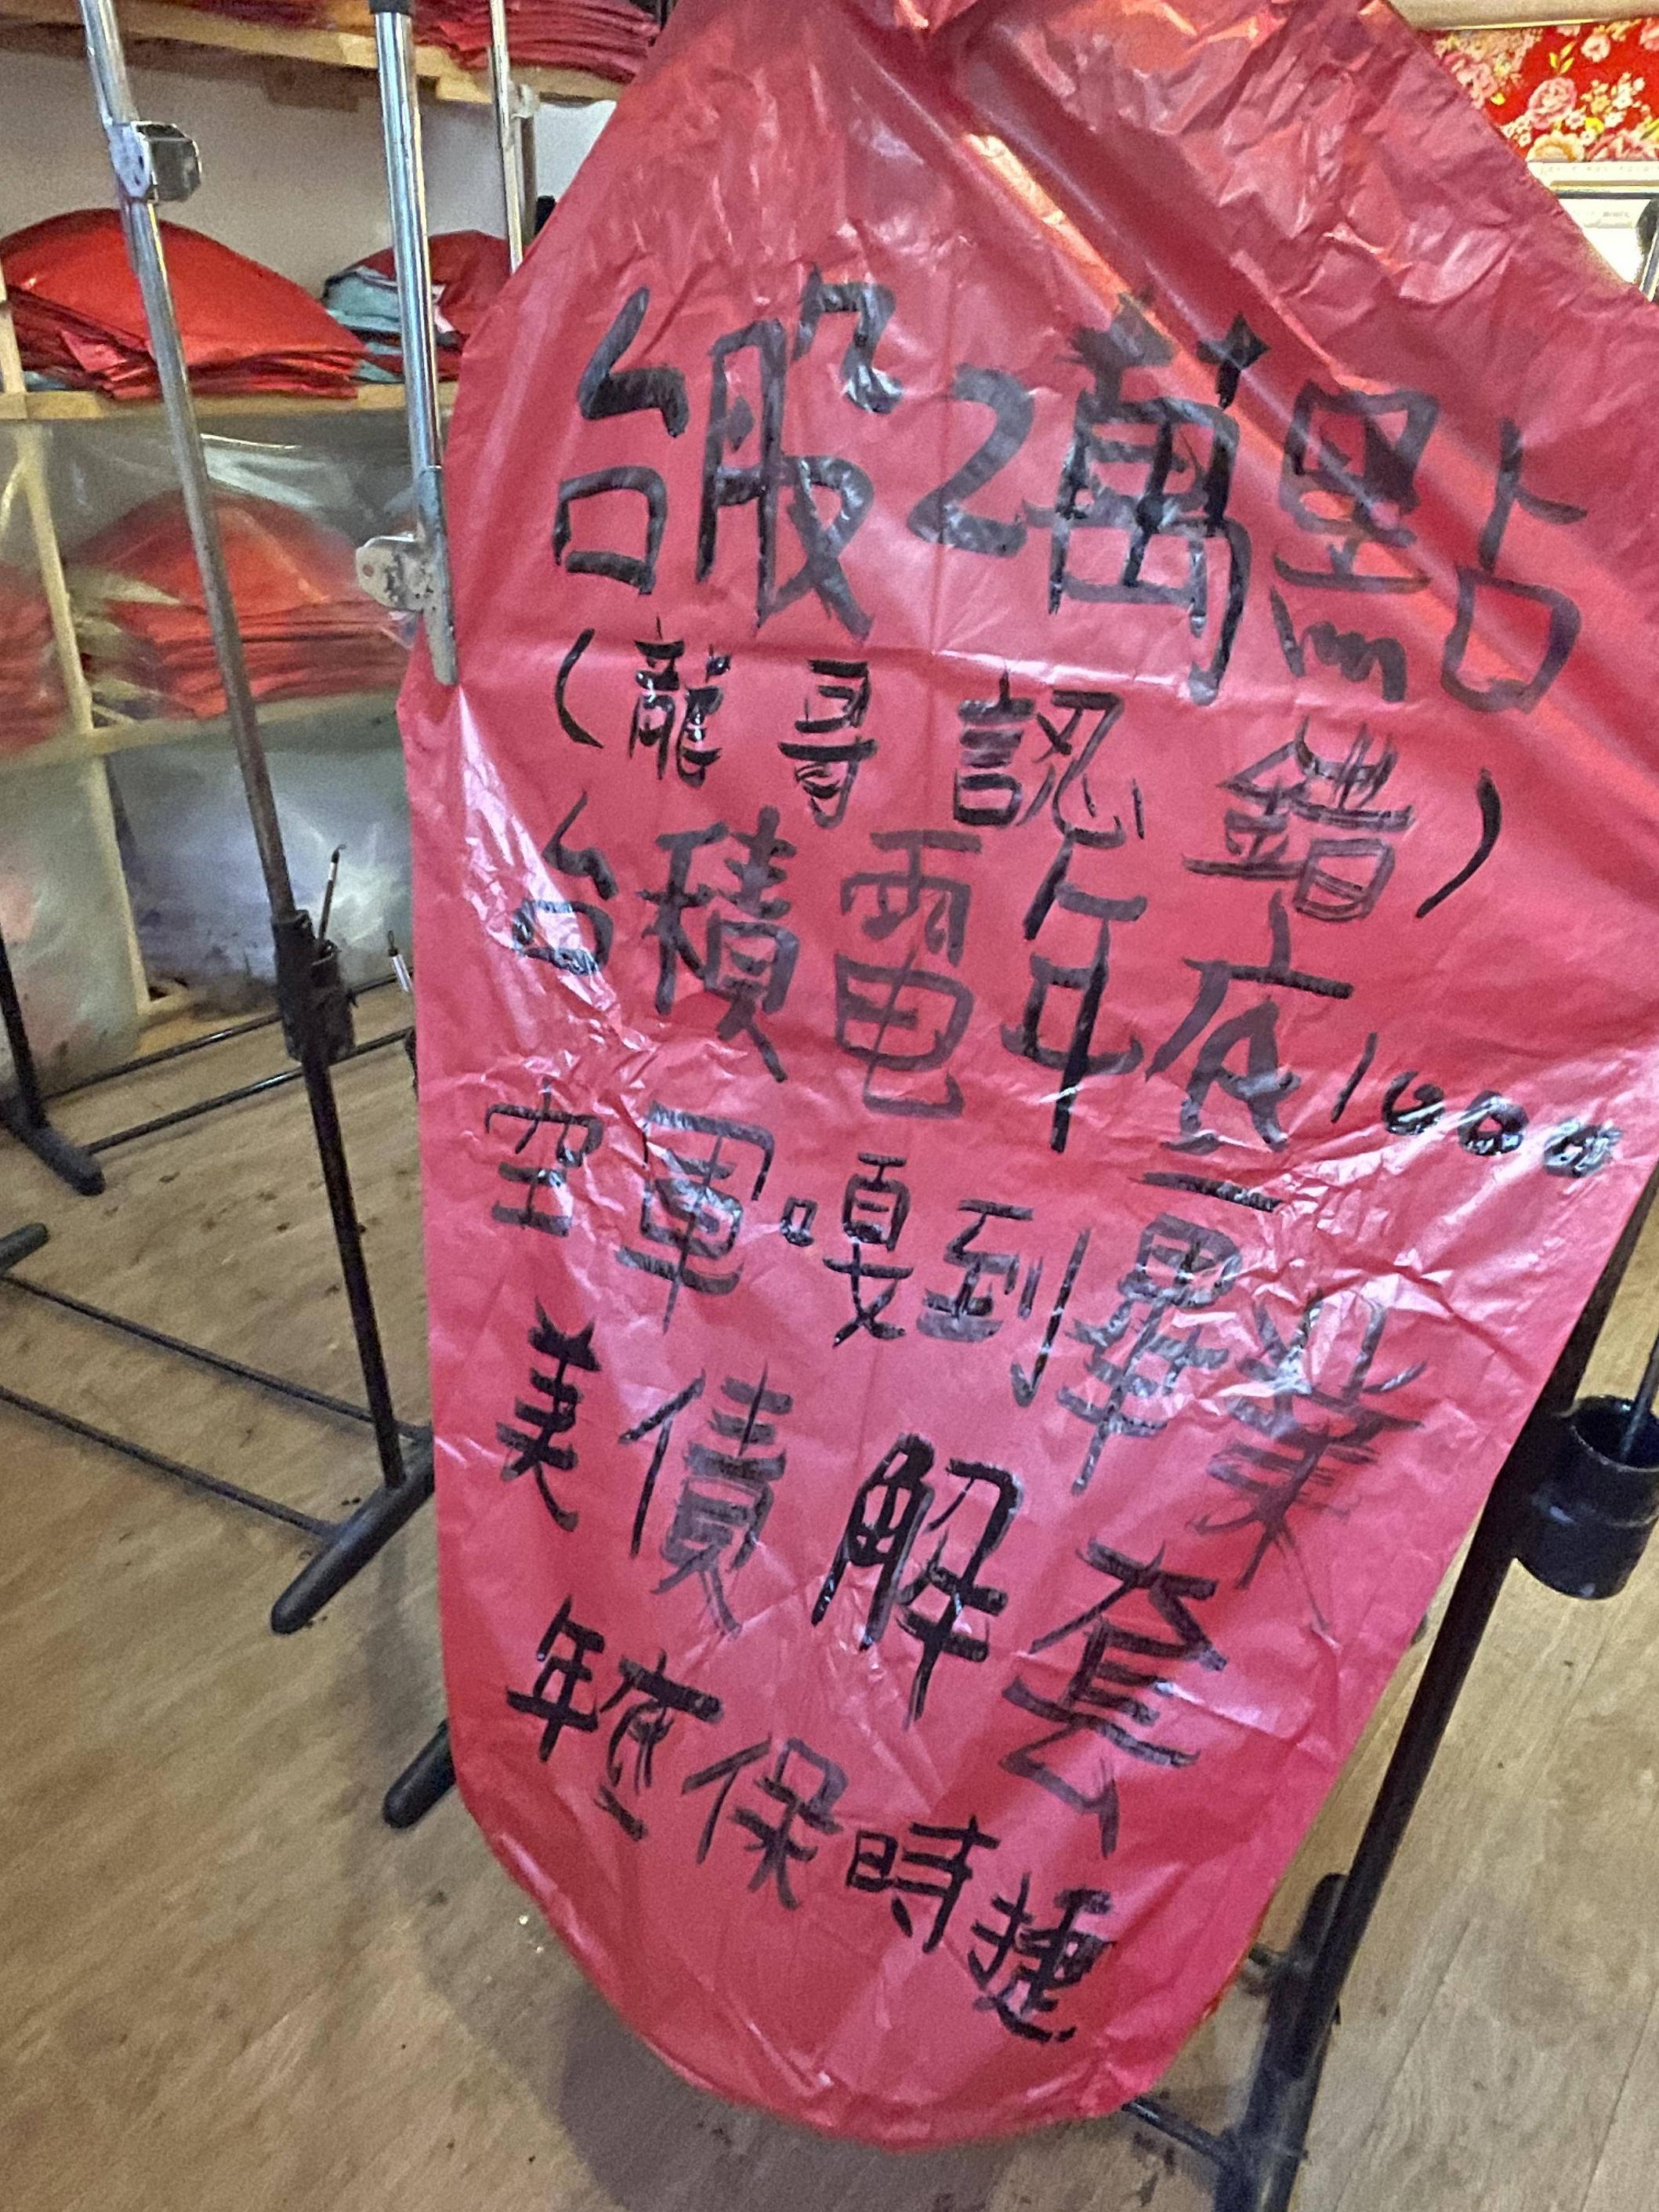 台股2萬點
(龍哥認錯)
台積電年底1000
空軍嘎到畢業
美債解套
年底保時捷